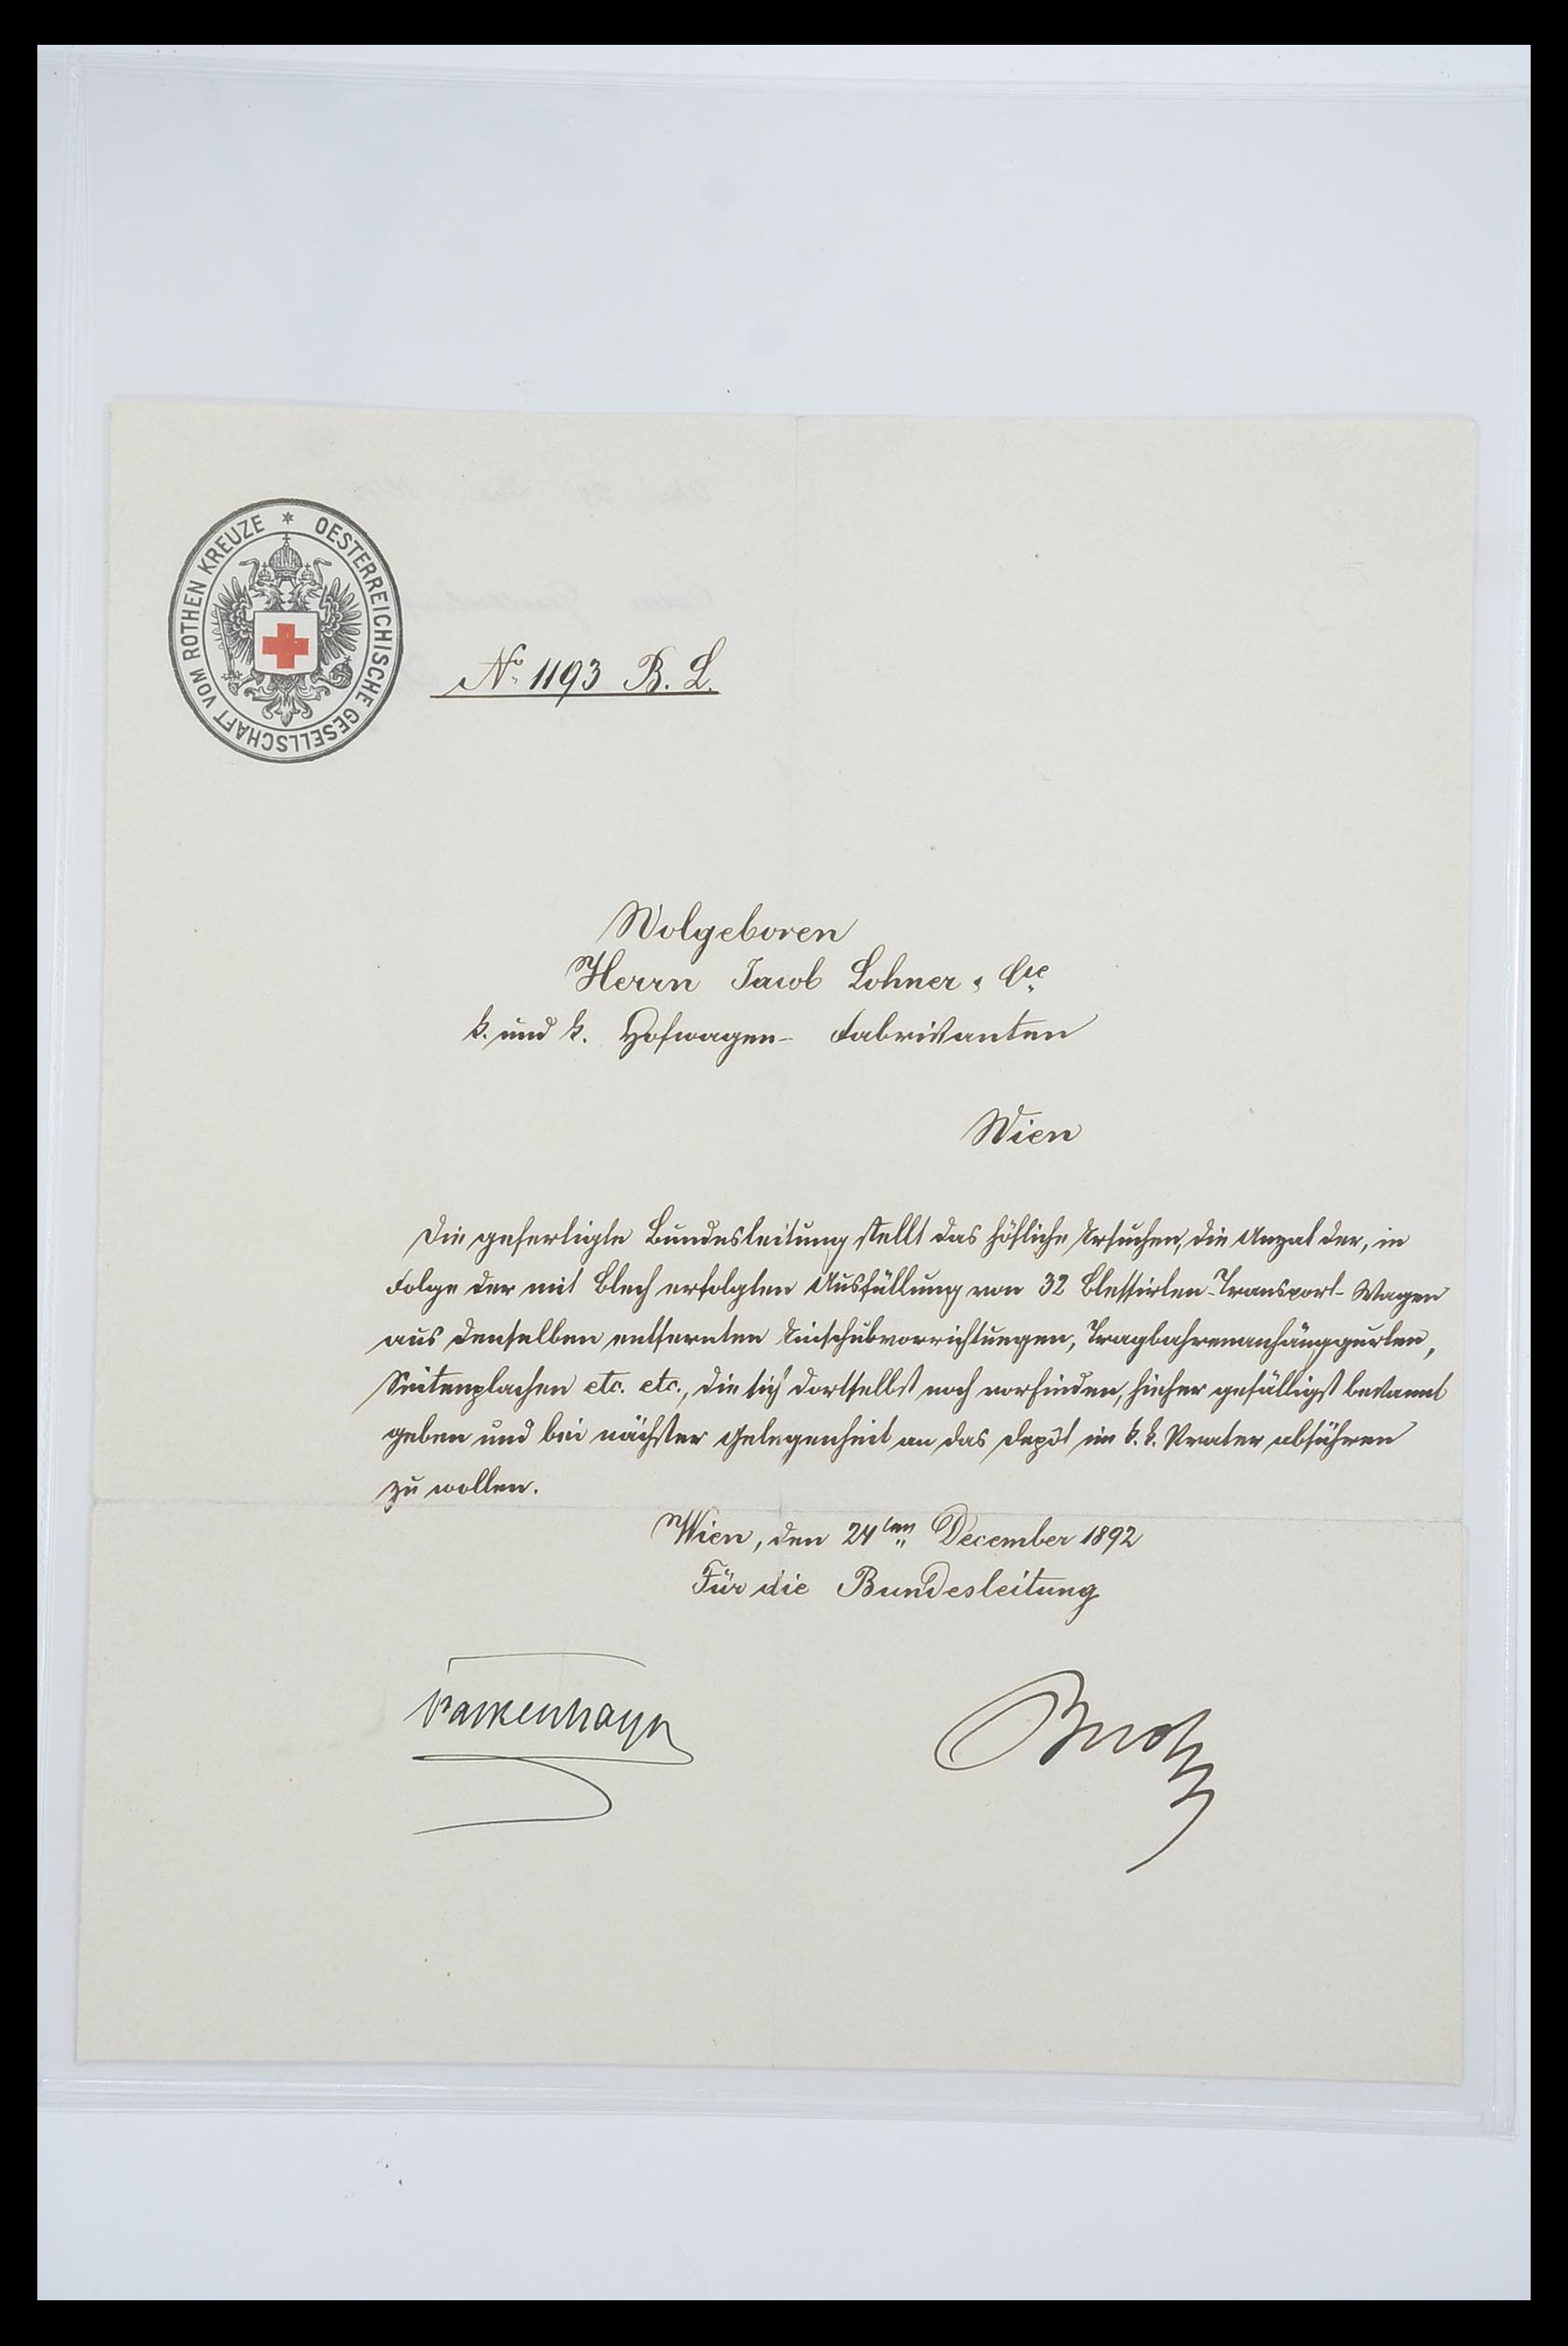 OESTERREICHISCHE GESELLSCHAFT VOM ROTHEN KREUZE *
No. 1193 B. L.
Wolgeboren
Herrn Jacob Lohner & Cie
k. und k. Hofwagen- Fabrikanten
Wien
Die gefertigte Bundesleitung stellt das höfliche Ersuchen, die Anzal der, in
Folge der mit Blech erfolgten Ausfüllung von 32 Blessirten-Transport-Wagen
aus denselben entfernten Einschubvorrichtungen, Tragbahrenanhänggurten,
Seitenplachen etc. etc., die sich dortselbst noch vorfinden, hieher gefälligst bekannt
geben und bei nächster Gelegenheit an das Depôt im k. k. Prater abführen
zu wollen.
Wien, den 24ten December 1892
Für die Bundesleitung